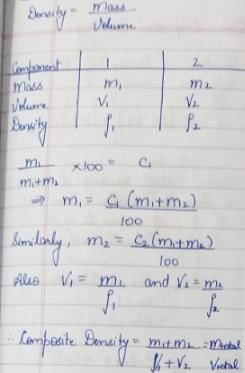 Density = Mass / Volume
Component 1 2
Mass m₁ m₂
Volume V₁ V₂
Density ρ₁ ρ₂
m₁ / m₁+m₂ ×100 = C₁
⇒ m₁ = C₁(m₁+m₂) / 100
Similarly, m₂ = C₂(m₁+m₂) / 100
Also V₁ = m₁ / ρ₁ and V₂ = m₂ / ρ₂
∴ Composite Density = m₁+m₂ / V₁+V₂ = Mtotal / Vtotal